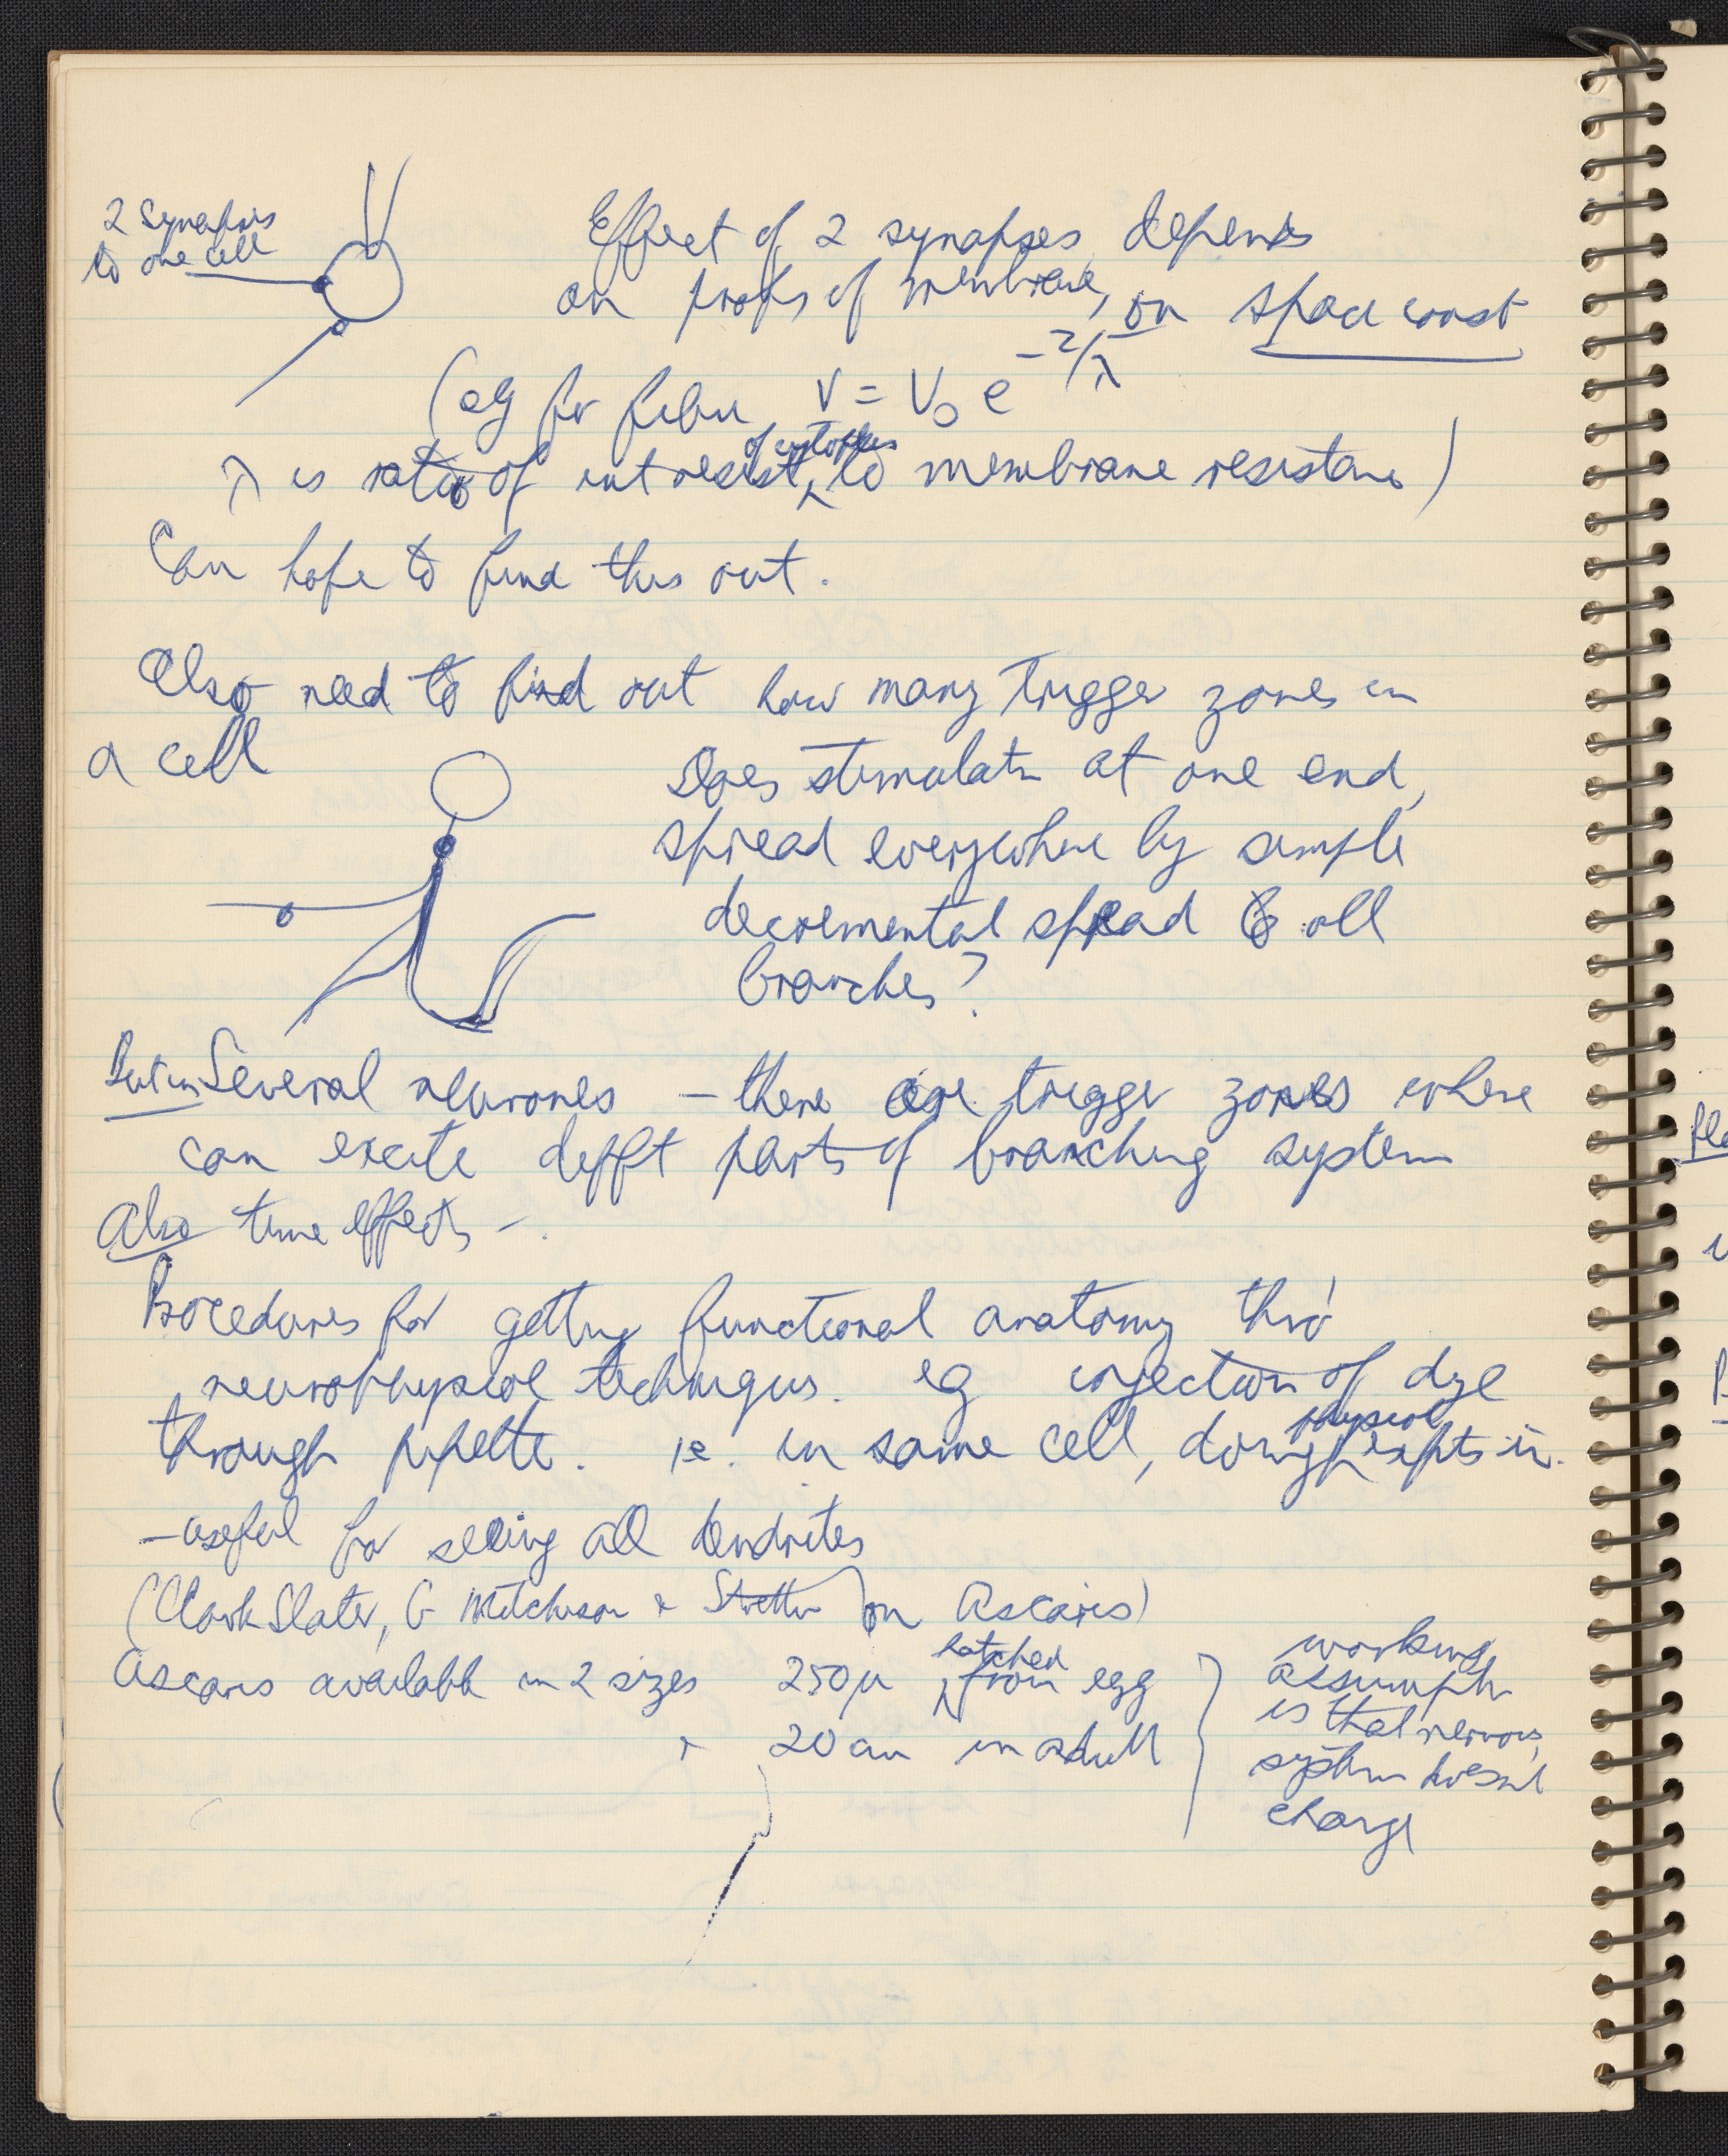 2 Synapsis
to one cell
Effect of 2 synapses depends
on props of membrane, on space const
(eg for fibre V = V₀ e^-2/λ
of cytoplas
λ is ratio of int resist, to membrane resistans)
Can hope to find this out.
Also need to find out how many trigger zones in
a cell
Does stimulatn at one end,
spread everywhere by simple
decremental spread to all
branches?
But in Several neurones – there are trigger zones where
can excite difft parts of branching system
Also time effects –
Procedures for getting functional anatomy thro'
neurophysiol techniques. eg injection of dye
physiol
through pipette. ie. in same cell, doing expts in.
– useful for seeing all dendrites
(Clark Slater, G Mitchison & Stretton on Ascaris)
hatched
Ascaris available in 2 sizes 250μ from egg
& 20 cm in adult
working
assumptn
is that nervous
system doesnt
change